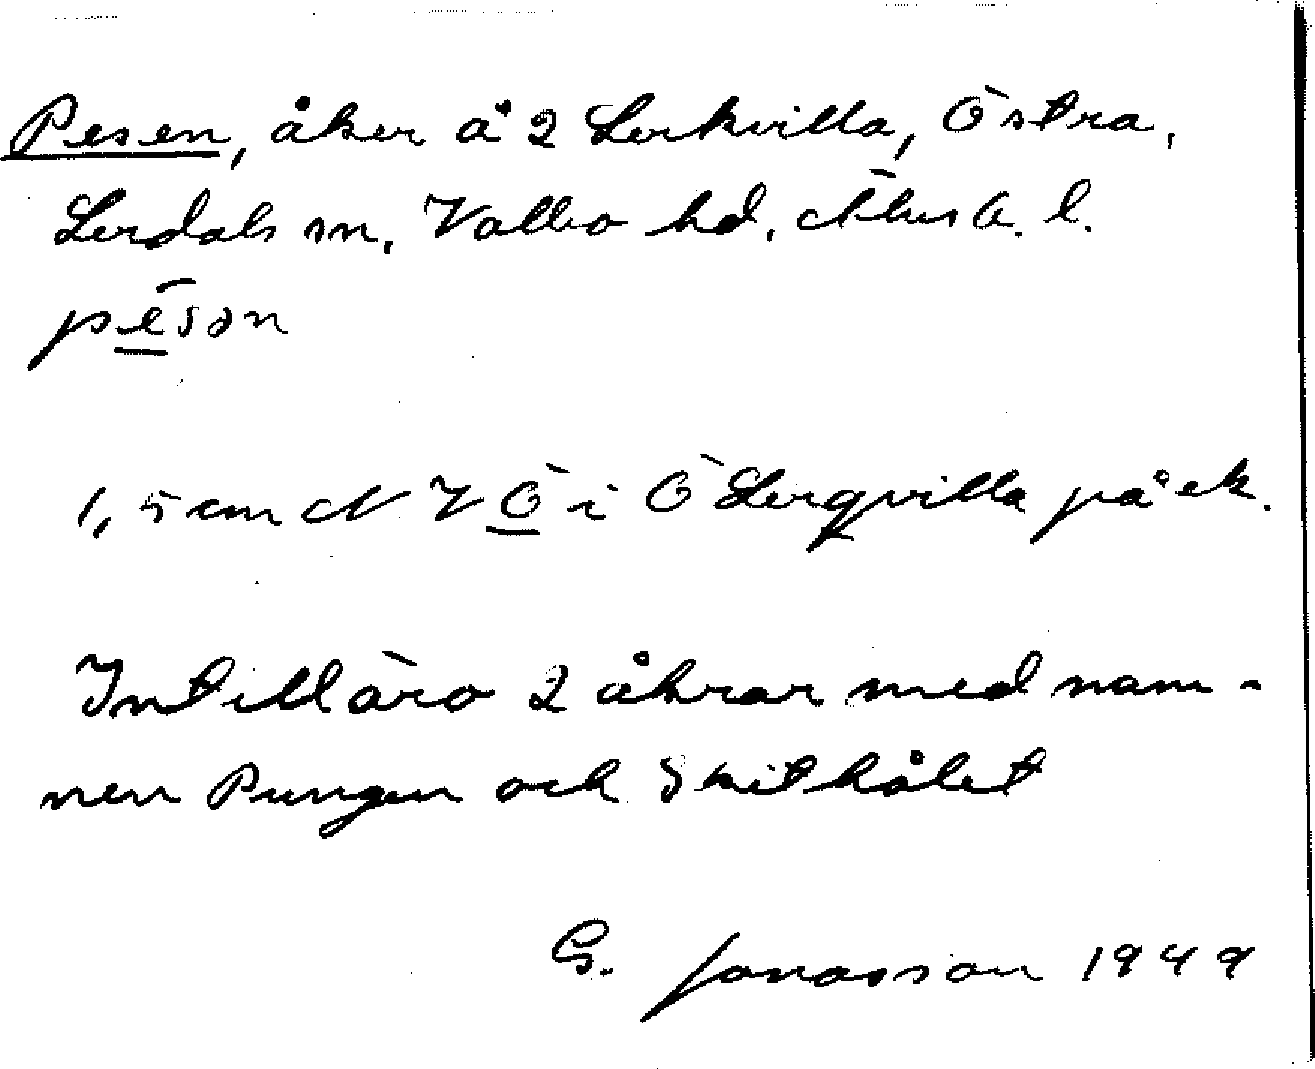 Pesen, åker å 2 Lerkvilla, Östra,
Lerdals sn, Valbo hd, Älvsb. l.
pēsən
1,5 cm N V Ö i Ö Lerqvilla på ek.
Intill äro 2 åkrar med nam-
nen Pungen och Skithålet
G. Jonasson 1949